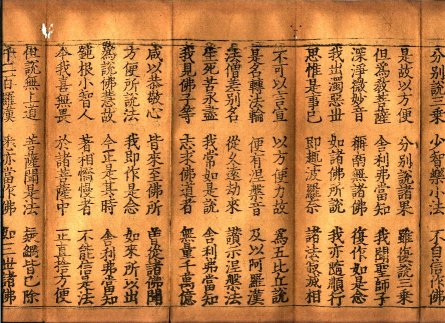 分別說三乘　少智樂小法　不自信作佛
是故以方便　分別說諸果　雖復說三乘
但為教菩薩　舍利弗當知　我聞聖師子
深淨微妙音　稱南無諸佛　復作如是念
我出濁惡世　如諸佛所說　我亦隨順行
思惟是事已　即趣波羅柰　諸法寂滅相
不可以言宣　以方便力故　為五比丘說
是名轉法輪　便有涅槃音　及以阿羅漢
法僧差別名　從久遠劫來　讚示涅槃法
生死苦永盡　我常如是說　舍利弗當知
我見佛子等　志求佛道者　無量千萬億
咸以恭敬心　皆來至佛所　曾從諸佛聞
方便所說法　我即作是念　如來所以出
為說佛慧故　今正是其時　舍利弗當知
鈍根小智人　著相憍慢者　不能信是法
今我喜無畏　於諸菩薩中　正直捨方便
但說無上道　菩薩聞是法　疑網皆已除
千二百羅漢　悉亦當作佛　如三世諸佛